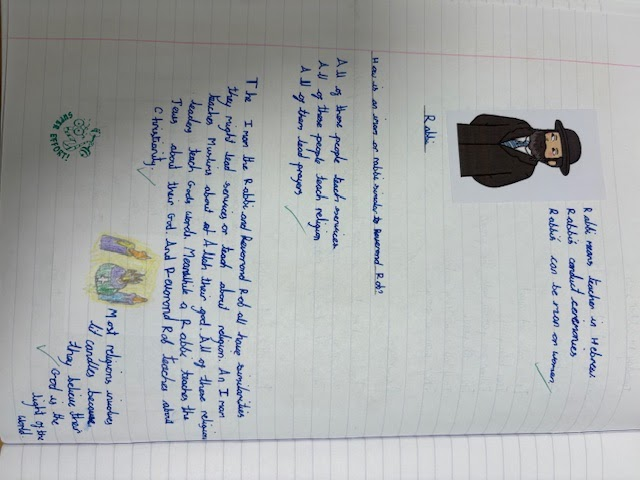 Rabbi means teacher in Hebrew.
Rabbi's conduct ceremonies
Rabbi's can be man or woman
Rabbi
How is an imam or rabbi similar to Reverend Rob?
All of these people teach services
All of these people teach religion
All of them lead prayers
The Imam the Rabbi and Reverend Rob all have similarities
they might lead services or teach about religion. An Imam
teaches Muslims about at Allah their god. All of these religion
leaders teach Gods words. Meanwhile a Rabbi teaches the
Jews about their God. And Reverend Rob teaches about
Christianity.
Most religions involves
lit candles because
they believe their
God is the
light of the
World
SUPER EFFORT!